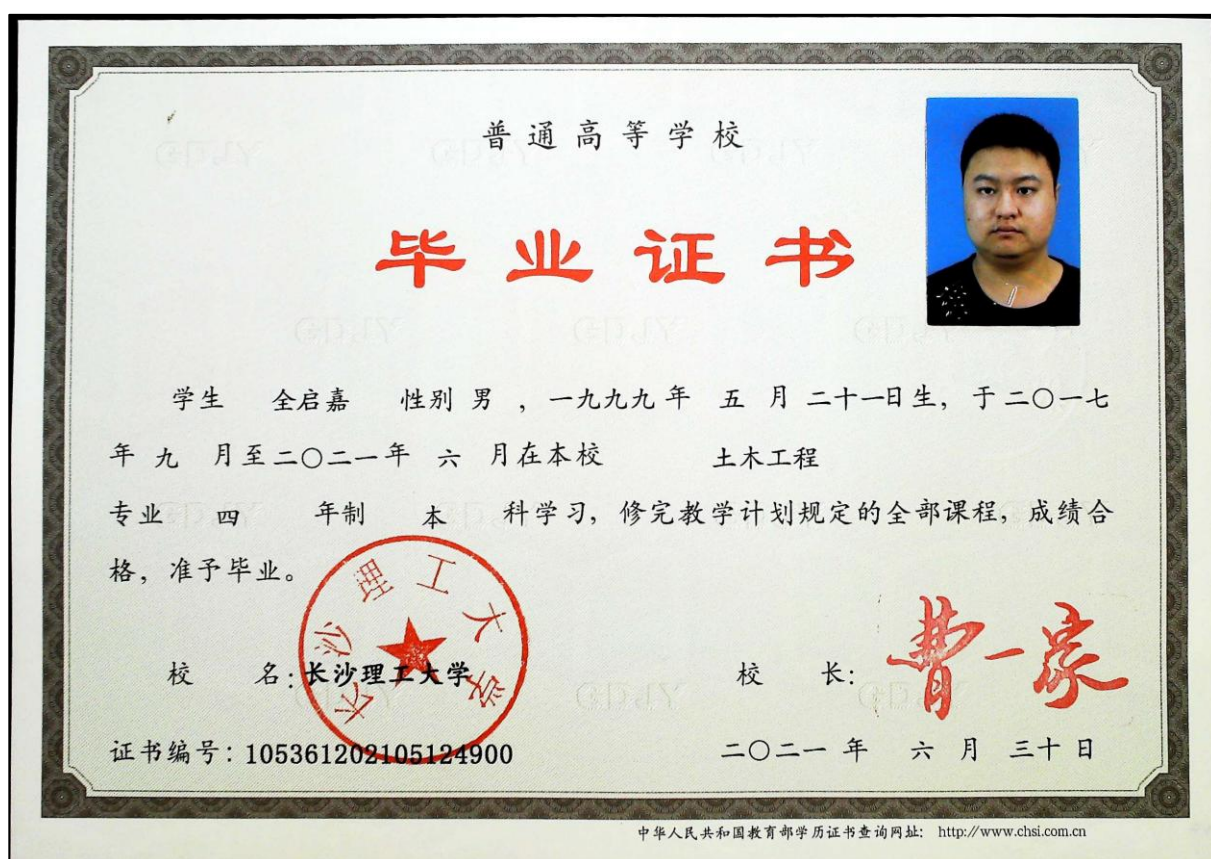 普通高等学校
毕业证书
学生 全启嘉 性别 男 ，一九九九年 五 月 二十一日生，于二〇一七
年 九 月至二〇二一年 六 月在本校 土木工程
专业 四 年制 本 科学习，修完教学计划规定的全部课程，成绩合
格，准予毕业。
长沙理工大学
校 名：长沙理工大学 校 长：曹一家
证书编号：105361202105124900 二〇二一 年 六 月 三十 日
中华人民共和国教育部学历证书查询网址： http://www.chsi.com.cn